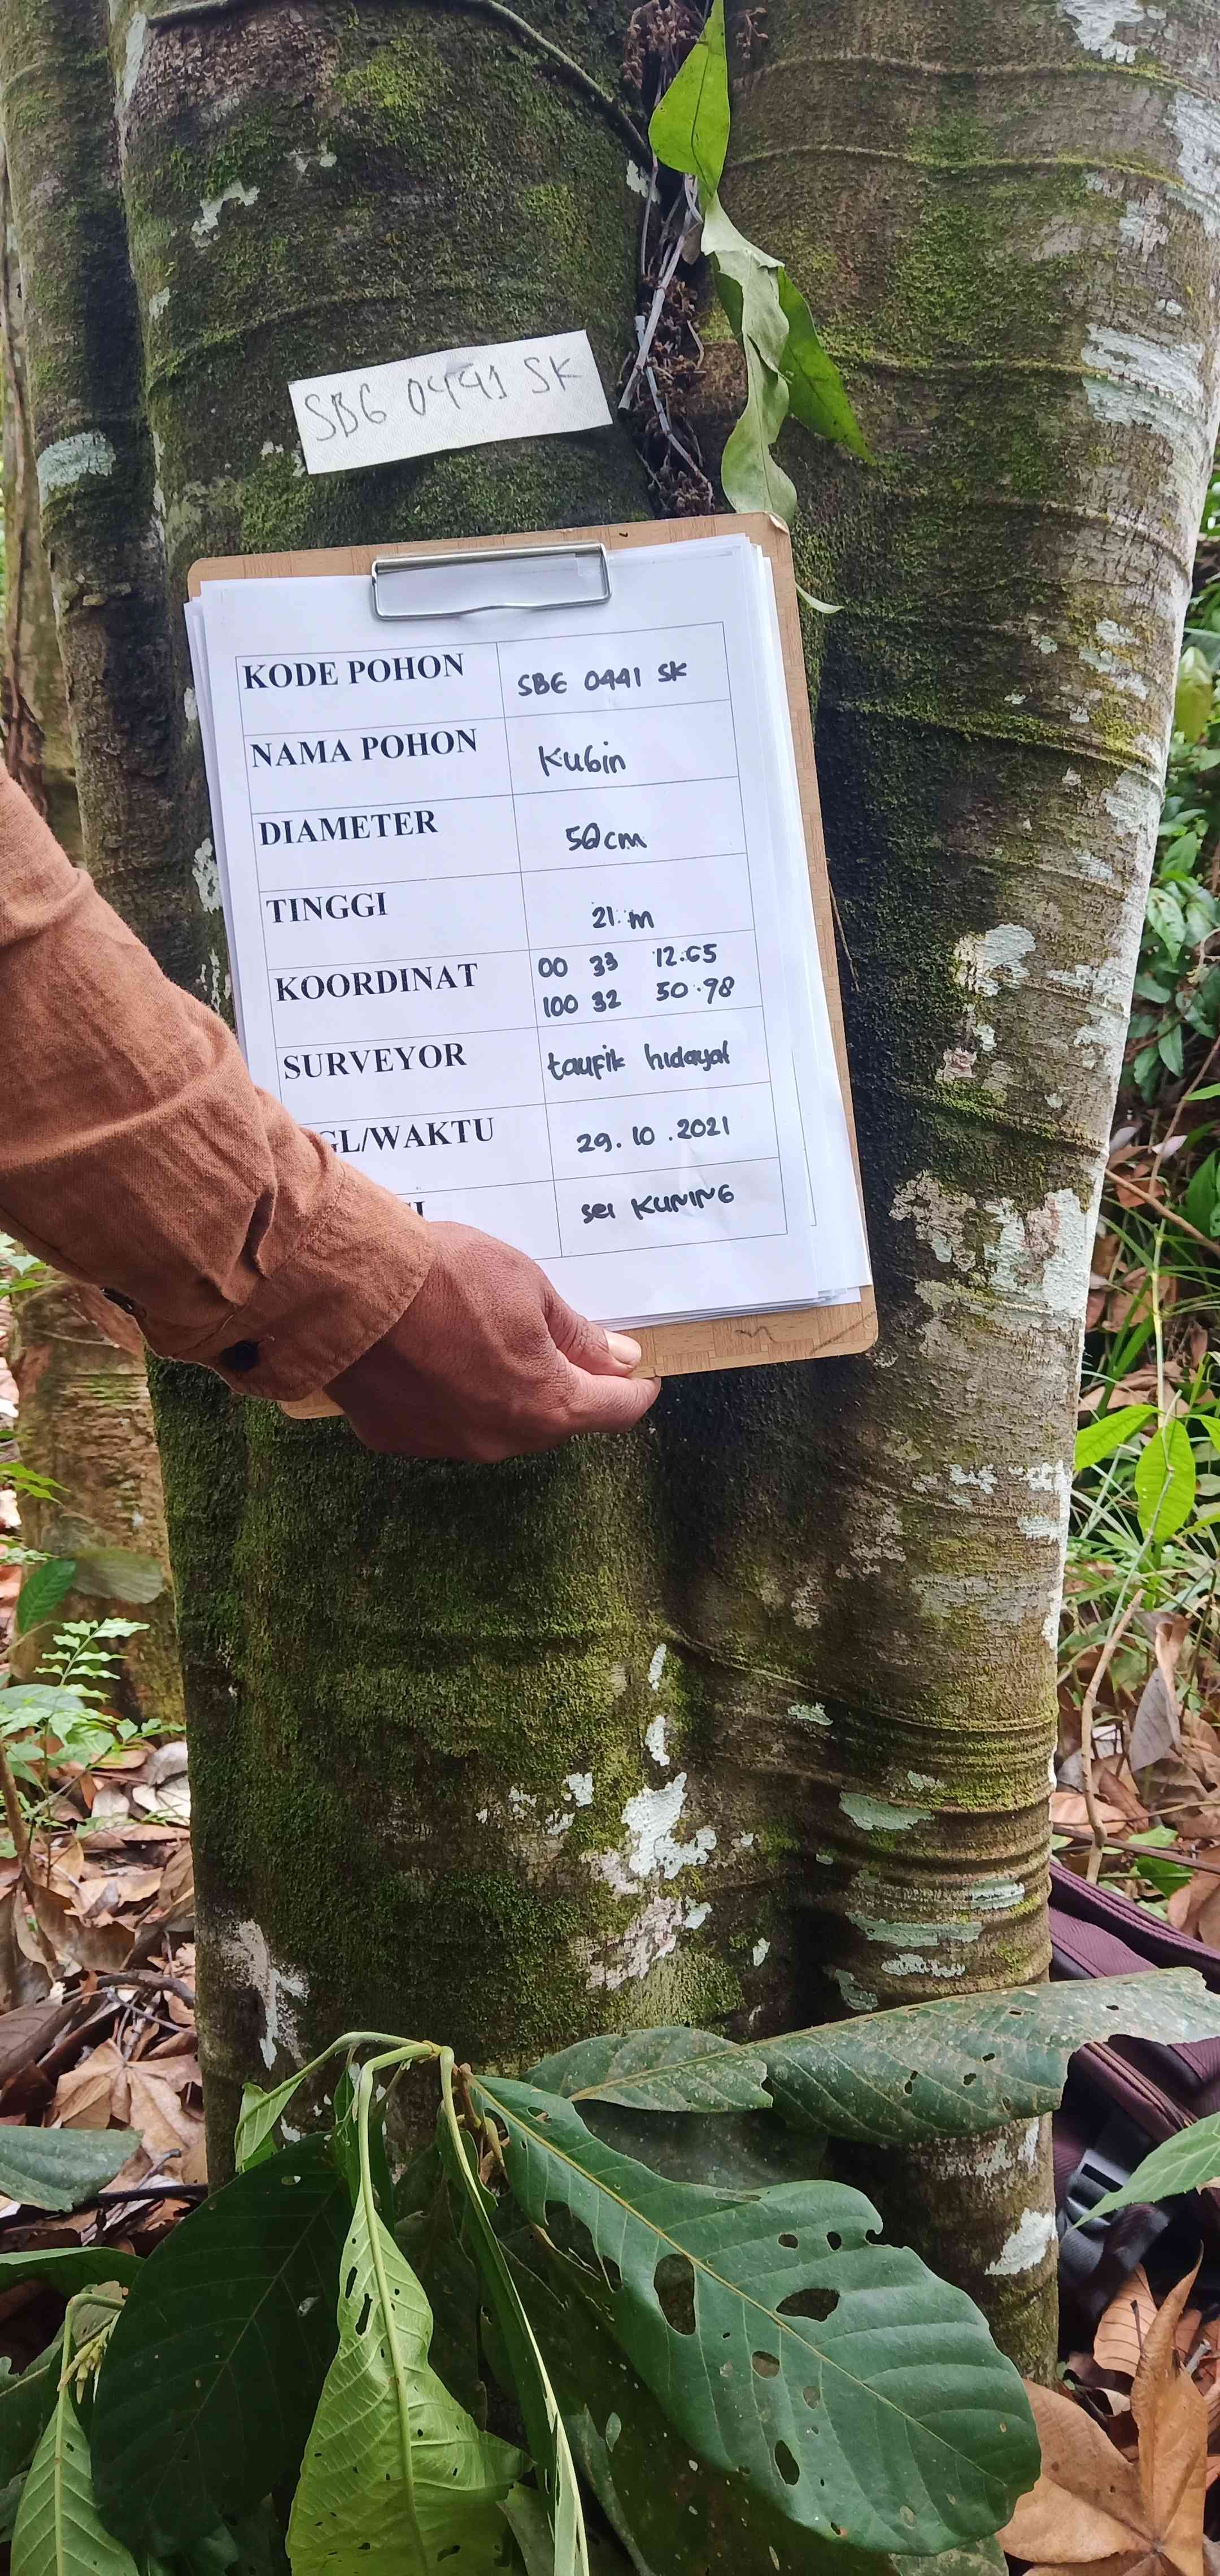 SBG 0441 SK
KODE POHON SBG 0441 SK
NAMA POHON Kubin
DIAMETER cm
TINGGI 21 m
KOORDINAT 00 33 12.65
100 32 50.98
SURVEYOR taufik hidayat
GL/WAKTU 29.10.2021
sei KUNING